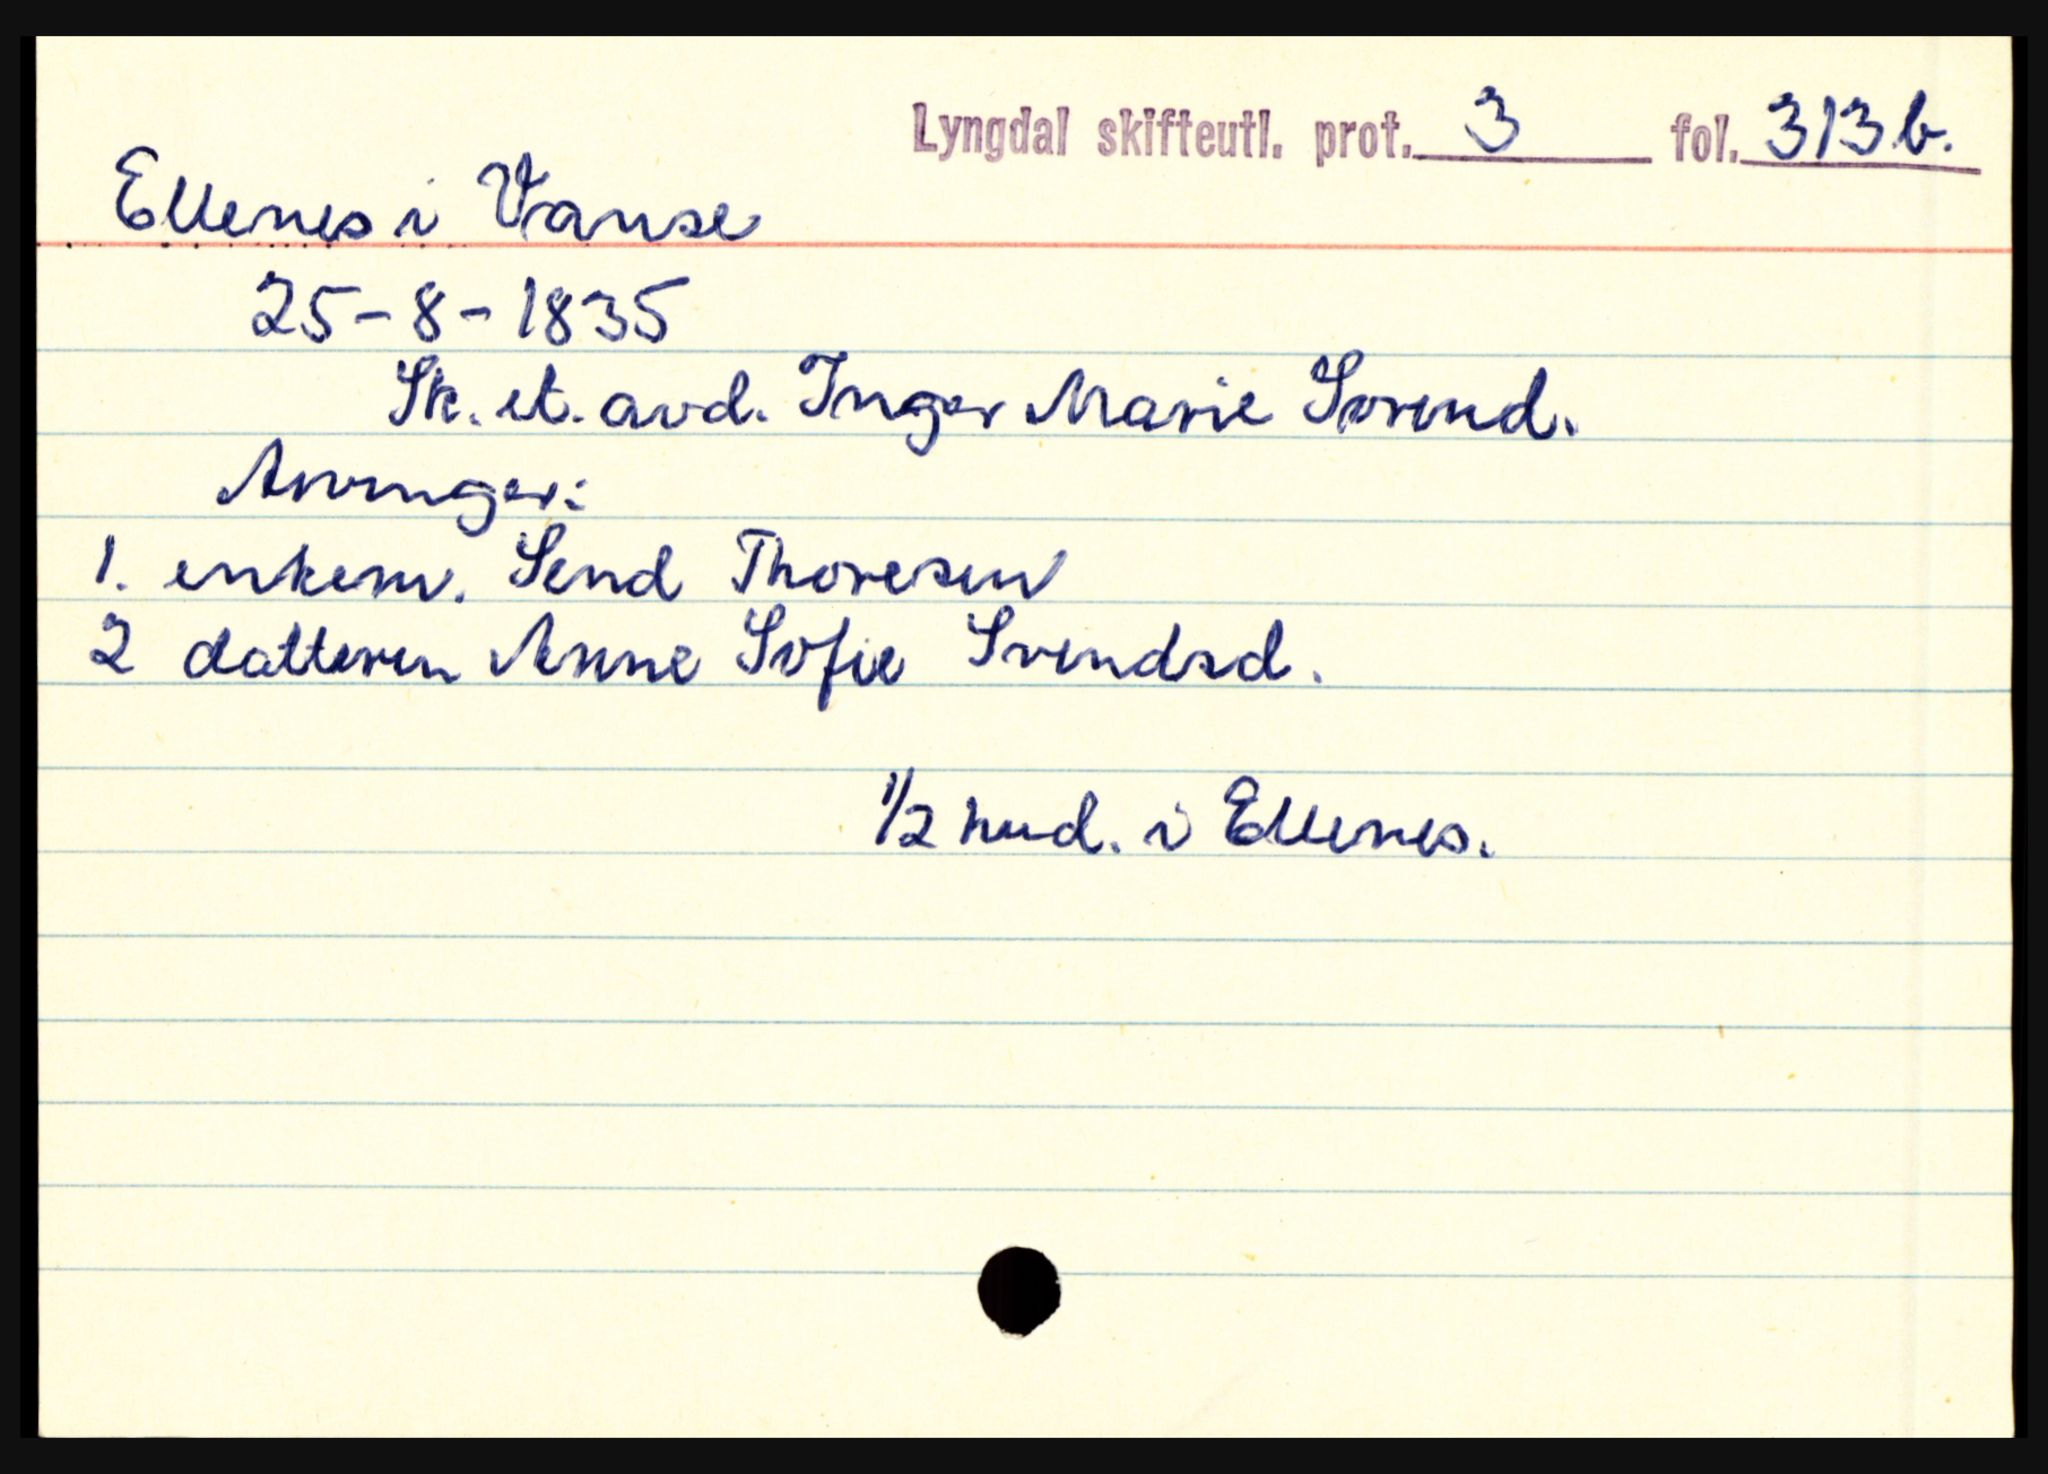 Lyngdal skifteutl. prot. 3 fol. 313.b.
Ellenes i Vanse
25-8-1835
Sk. et. avd. Inger Marie Sørend.
Arvinger:
1. enkem. Send Thoresen
2 datteren Anne Sofie Svendsd.
1/2 hud. i Ellenes.